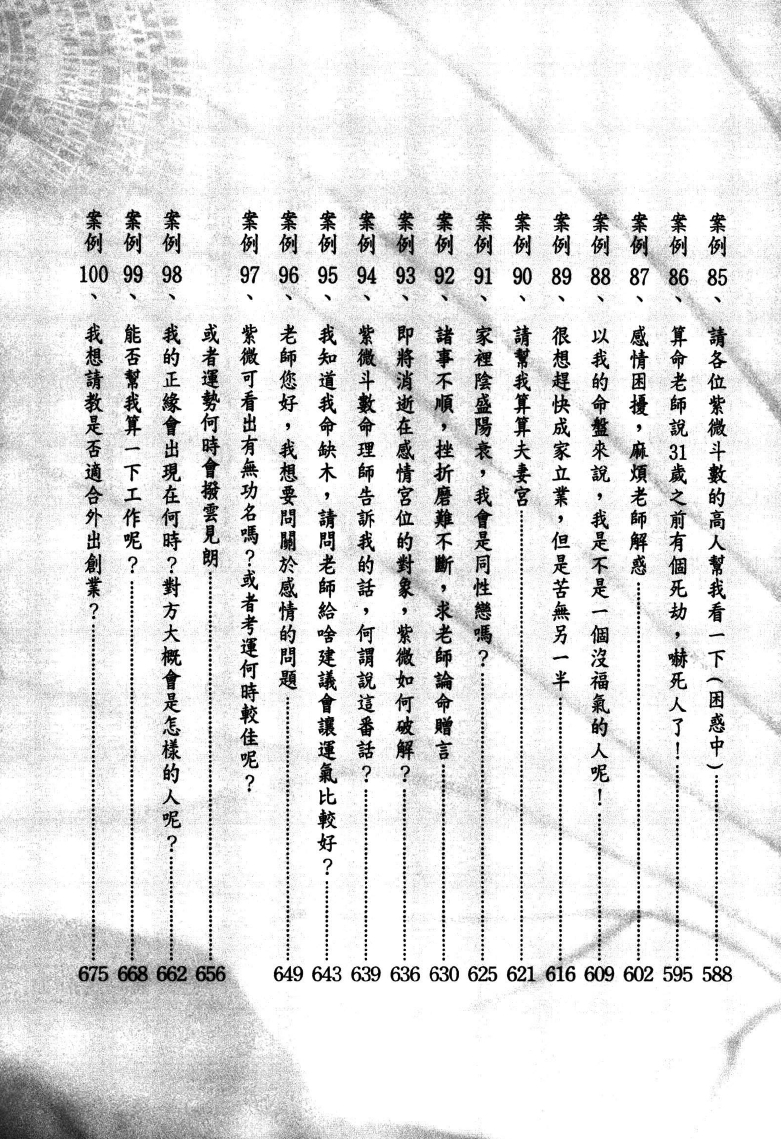 案例 85、請各位紫微斗數的高人幫我看一下(困惑中)……588
案例 86、算命老師說31歲之前有個死劫,嚇死人了!……595
案例 87、感情困擾,麻煩老師解惑……602
案例 88、以我的命盤來說,我是不是一個沒福氣的人呢!……609
案例 89、很想趕快成家立業,但是苦無另一半……616
案例 90、請幫我算算夫妻宮……621
案例 91、家裡陰盛陽衰,我會是同性戀嗎?……625
案例 92、諸事不順,挫折磨難不斷,求老師論命贈言……630
案例 93、即將消逝在感情宮位的對象,紫微如何破解?……636
案例 94、紫微斗數命理師告訴我的話,何謂說這番話?……639
案例 95、我知道我命缺木,請問老師給啥建議會讓運氣比較好?……643
案例 96、老師您好,我想要問關於感情的問題……649
案例 97、紫微可看出有無功名嗎?或者考運何時較佳呢?
或者運勢何時會撥雲見朗……656
案例 98、我的正緣會出現在何時?對方大概會是怎樣的人呢?……662
案例 99、能否幫我算一下工作呢?……668
案例 100、我想請教是否適合外出創業?……675